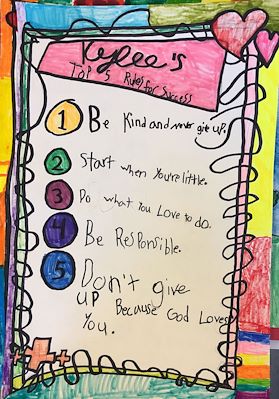 Kylee's
Top 5 Rules for Success
1 Be Kind and never give up.
2 Start when you're little.
3 Do what you Love to do.
4 Be Responsible.
5 Don't give
up Because God Loves
You.